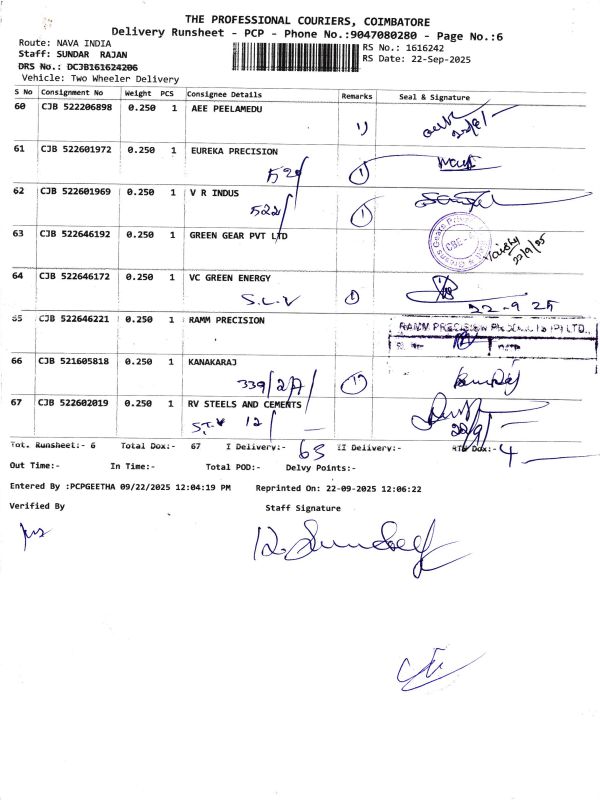 THE PROFESSIONAL COURIERS, COIMBATORE
Delivery Runsheet - PCP - Phone No.:9047080280 - Page No.:6
Route: NAVA INDIA
RS No.: 1616242
Staff: SUNDAR RAJAN
RS Date: 22-Sep-2025
DRS No.: DCJB161624206
Vehicle: Two Wheeler Delivery
S No Consignment No Weight PCS Consignee Details Remarks Seal & Signature
60 CJB 522206898 0.250 1 AEE PEELAMEDU
61 CJB 522601972 0.250 1 EUREKA PRECISION
62 CJB 522601969 0.250 1 V R INDUS
522/
63 CJB 522646192 0.250 1 GREEN GEAR PVT LTD
22/9/25
64 CJB 522646172 0.250 1 VC GREEN ENERGY
S.L.V
22-9 25
65 CJB 522646221 0.250 1 RAMM PRECISION
66 CJB 521605818 0.250 1 KANAKARAJ
339/2A/
67 CJB 522602019 0.250 1 RV STEELS AND CEMENTS
12/
22/9/
Tot. Runsheet:- 6 Total Dox:- 67 I Delivery:- 63 II Delivery:- RTN Dox:- 4
Out Time:- In Time:- Total POD:- Delvy Points:-
Entered By :PCPGEETHA 09/22/2025 12:04:19 PM Reprinted On: 22-09-2025 12:06:22
Verified By Staff Signature